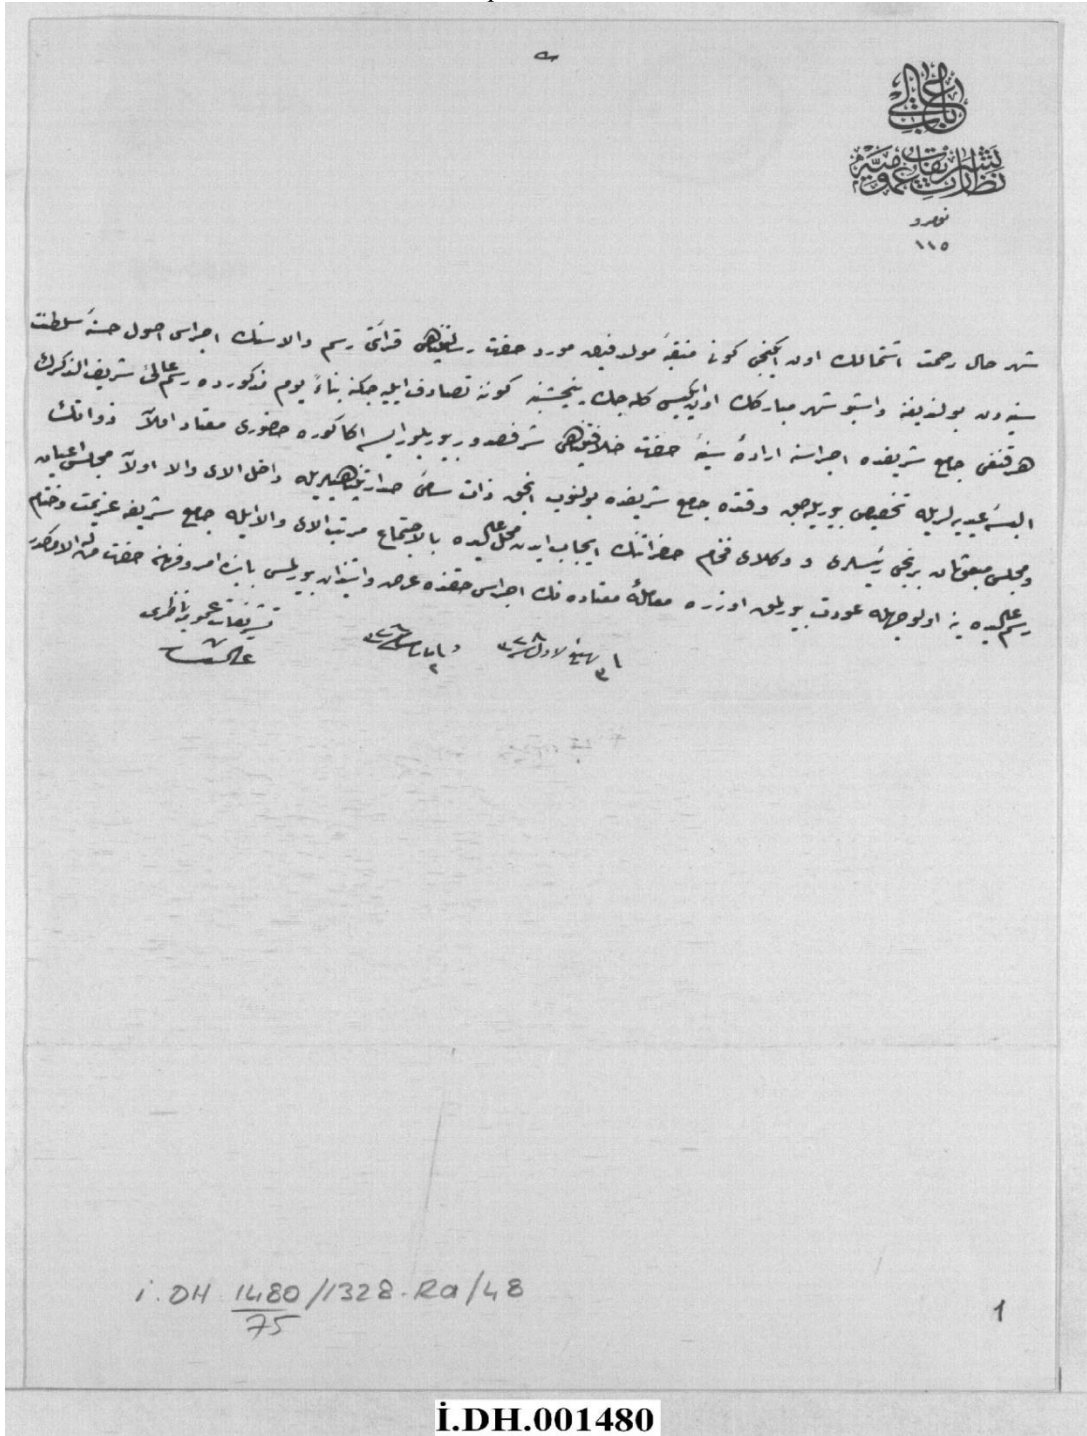 باب عالی
تشریفات عمومیه نظارتی
نومرو
١١٥
شهر حال رحمت اشتمالك اون ایكنجی كونی منقبهٔ مولد فیض مورد حضرت رسالتپناهی قرائتی رسم والاسنك اجراسی اصول حسنهٔ سلطنت
سنیه‌دن بولندیغنه و اشبو شهر مباركك اون ایكیسی كله‌جك پنجشنبه كوننه تصادف ایلیه‌جكنه بناءً یوم مذكورده رسم عالئ شریف الذكرك
هر قنغی جامع شریفده اجراسنه ارادهٔ سنیهٔ حضرت خلافتپناهی شرفصدور بیوریلور ایسه اكا كوره حضوری معتاد اولان ذواتك
البسهٔ عیدیه‌لریله تخصیص بیوریله‌جق وقتده جامع شریفده بولنوب انجق ذات سامئ صدارتپناهیلریله داخل الای والا اولان مجلس اعیان
و مجلس مبعوثان برنجی رئیسلری و وكلای فخام حضراتنك ایجاب ایدن محل عالیده بالاجتماع مرتب الای والا ایله جامع شریفه عزیمت و ختام
رسم عالیده ینه اولوجهله عودت بیورلمق اوزره معاملهٔ معتاده‌نك اجراسی حقنده عرض و استیذان بیورلمسی بابنده امر و فرمان حضرت من له الامركدر
٣ ربیع الاول سنه ٣٢٨
مارت سنه ٣٢٦
تشریفات عمومیه ناظری
İ.DH 1480/1328.Ra/48
75
1
İ.DH.001480